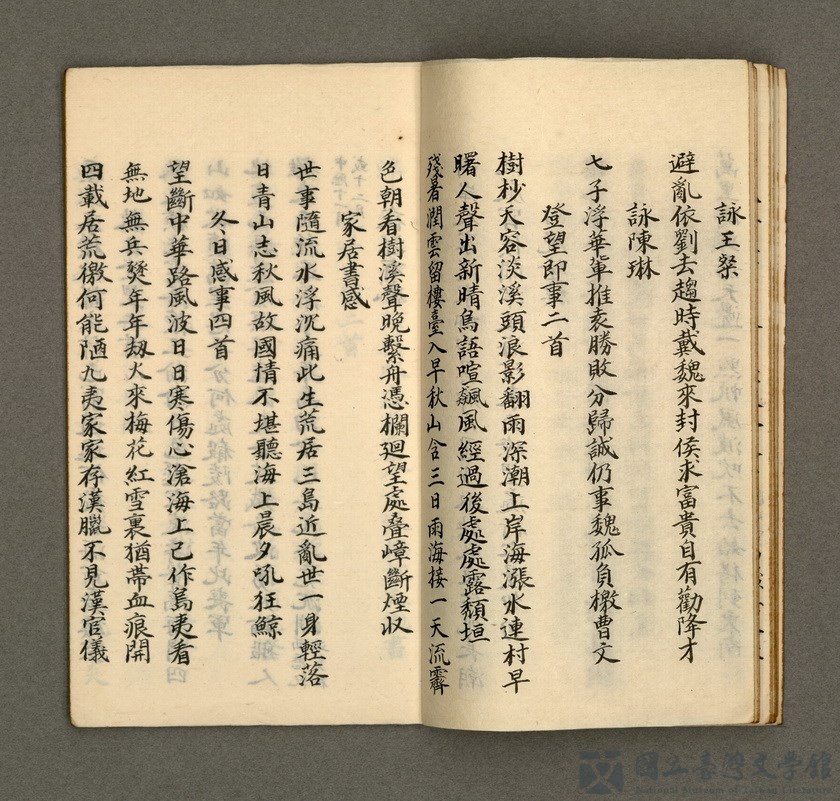 詠王粲
避亂依劉去趨時戴魏來封侯求富貴自有勸降才
詠陳琳
七子浮華輩推袁勝敗分歸誠仍事魏孤負檄曹文
登望即事二首
樹杪天容淡溪頭浪影翻雨深潮上岸海漲水連村早
曙人聲出新晴鳥語喧飆風經過後處處露頹垣
殘暑潤雲留樓臺入早秋山含三日雨海接一天流霽
色朝看樹溪聲晚繫舟憑欄廻望處叠嶂斷煙收
家居書感
世事隨流水浮沉痛此生荒居三島近亂世一身輕落
日青山志秋風故國情不堪聽海上晨夕吼狂鯨
冬日感事四首
望斷中華路風波日日寒傷心滄海上已作島夷看
無地無兵燹年年刼火來梅花紅雪裏猶帶血痕開
四載居荒徼何能陋九夷家家存漢臘不見漢官儀
國立臺灣文學館
National Museum of Taiwan Literature